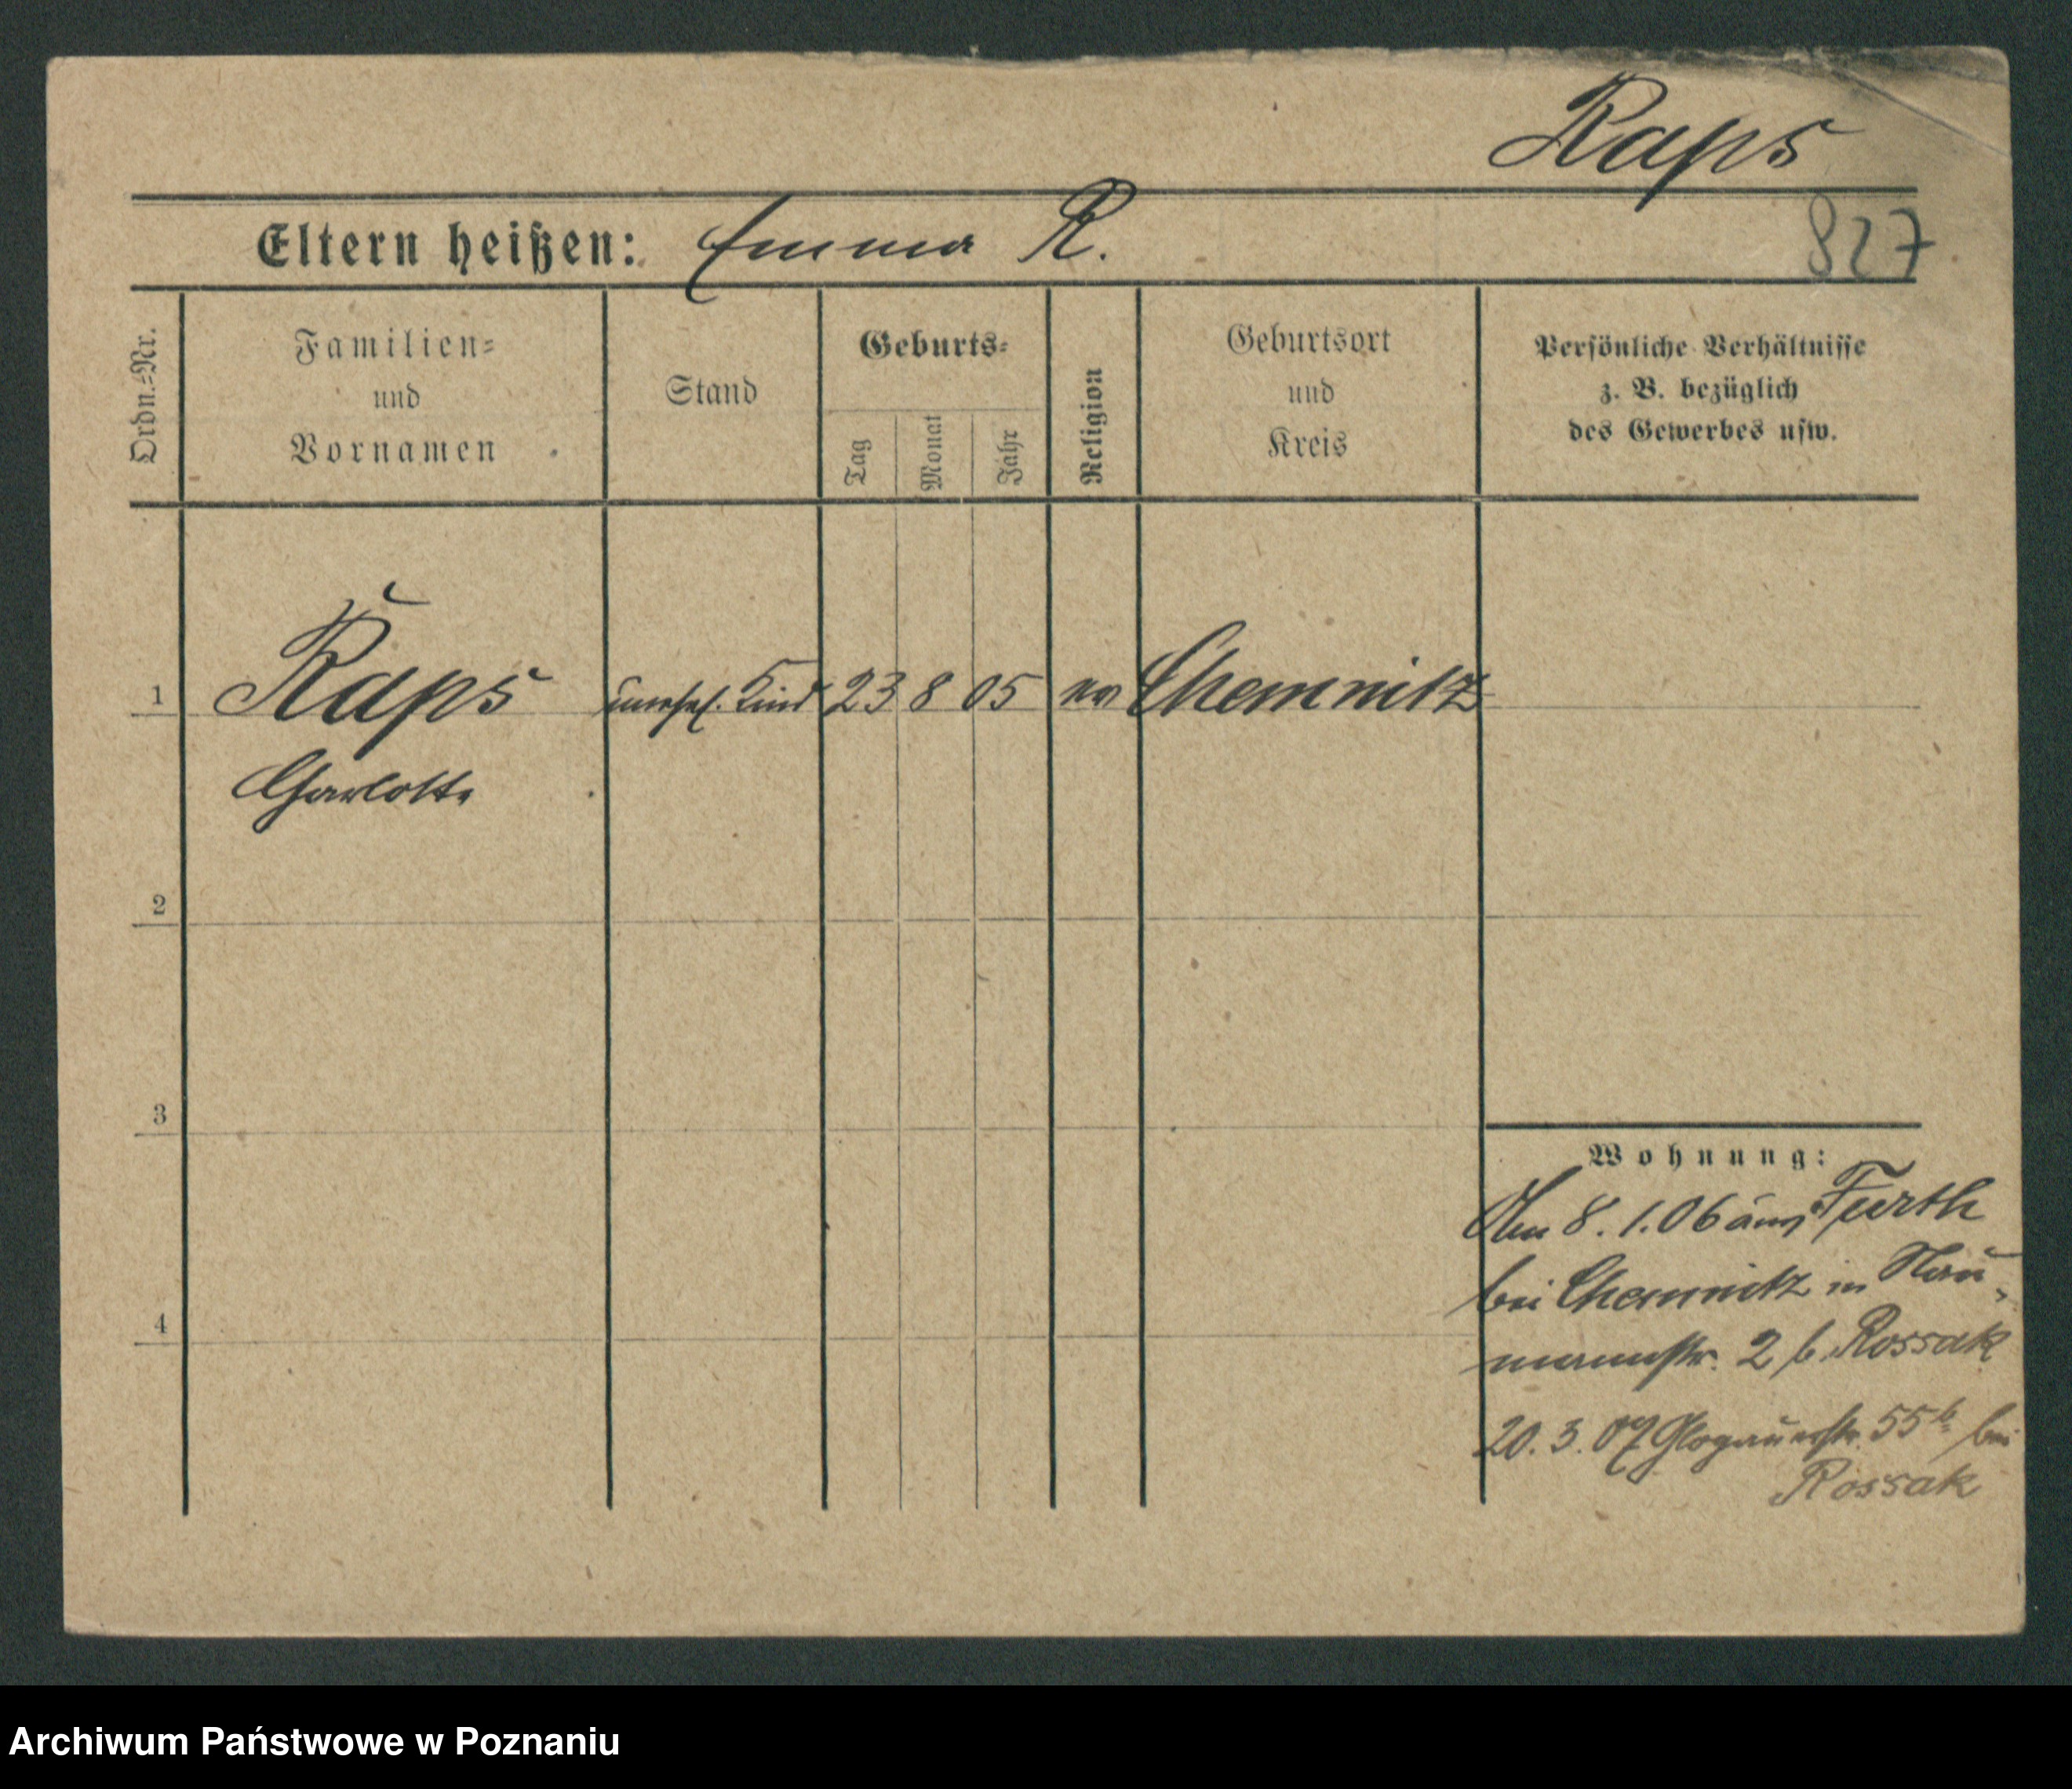 Raps
827
Eltern heißen: Emma R.
Ordn.=Nr.
Familien=
und
Vornamen
Stand
Geburts=
Tag
Monat
Jahr
Religion
Geburtsort
und
Kreis
Persönliche Verhältnisse
z. B. bezüglich
des Gewerbes usw.
1 Raps unehel. Kind 23 8 05 ev Chemnitz
Charlotte
2
3
4
Wohnung:
Am 8. 1. 06 aus Furth
bei Chemnitz in Nau-
mannstr. 2 b. Rossak
20. 3. 07 Glogauerstr. 55b bei
Rossak
Archiwum Państwowe w Poznaniu